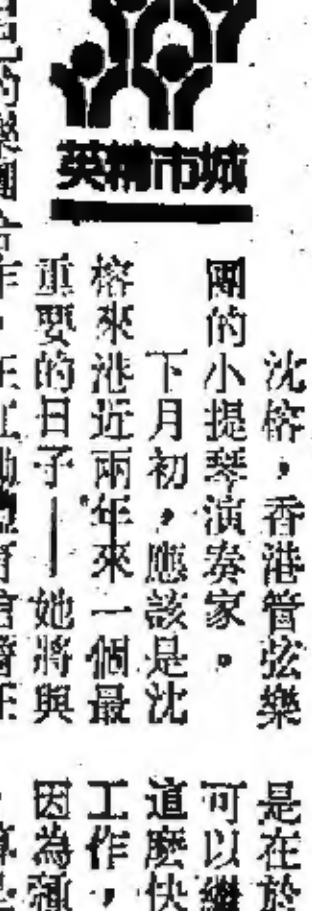 城市精英
沈榕，香港管弦樂
團的小提琴演奏家。
下月初，應該是沈
榕來港近兩年來一個最
重要的日子——她將與
是在於
可以繼
這麼快
工作，
因為種